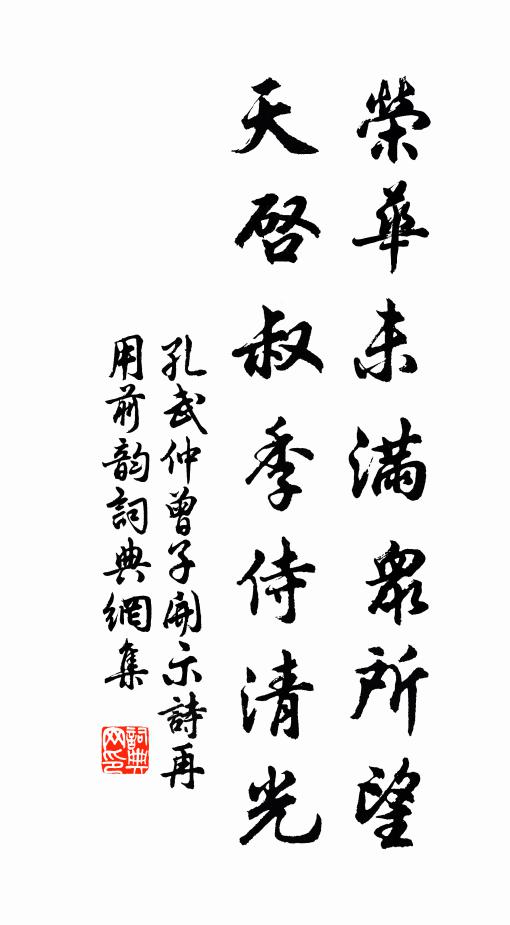 榮華未滿衆所望
天啓叔季侍清光
孔武仲曾子開示詩再
用前韵詞典網集
詞典网印